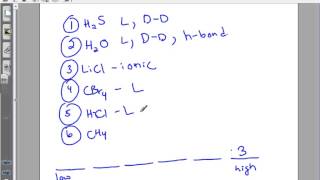 ① H₂S L, D-D
② H₂O L, D-D, h-bond
③ LiCl - ionic
④ CBr₄ - L
⑤ HCl - L
⑥ CH₄
3
low high